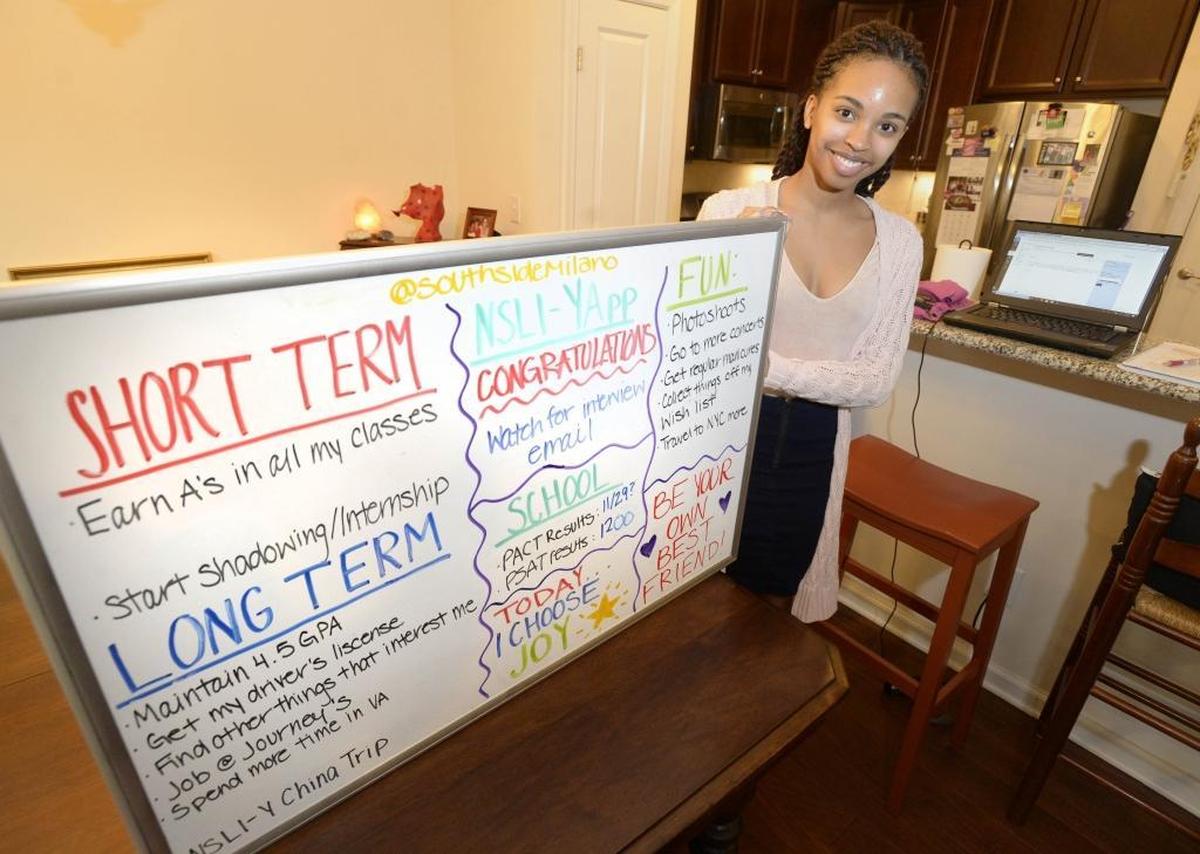 @southsideMilano
SHORT TERM
· Earn A's in all my classes
· Start Shadowing/Internship
LONG TERM
· Maintain 4.5 GPA
· Get my driver's liscense
· Find other things that interest me
· Job @ Journey's
· Spend more time in VA
NSLI-Y China Trip
NSLI-Y App
CONGRATULATIONS
Watch for interview
email
SCHOOL
PACT Results: 11/29?
PSAT results: 1200
TODAY
I CHOOSE
JOY
FUN:
· Photoshoots
· Go to more concerts
· Get regular manicures
· Collect things off my
wish list
· Travel to NYC more
BE YOUR
OWN
BEST
FRIEND!